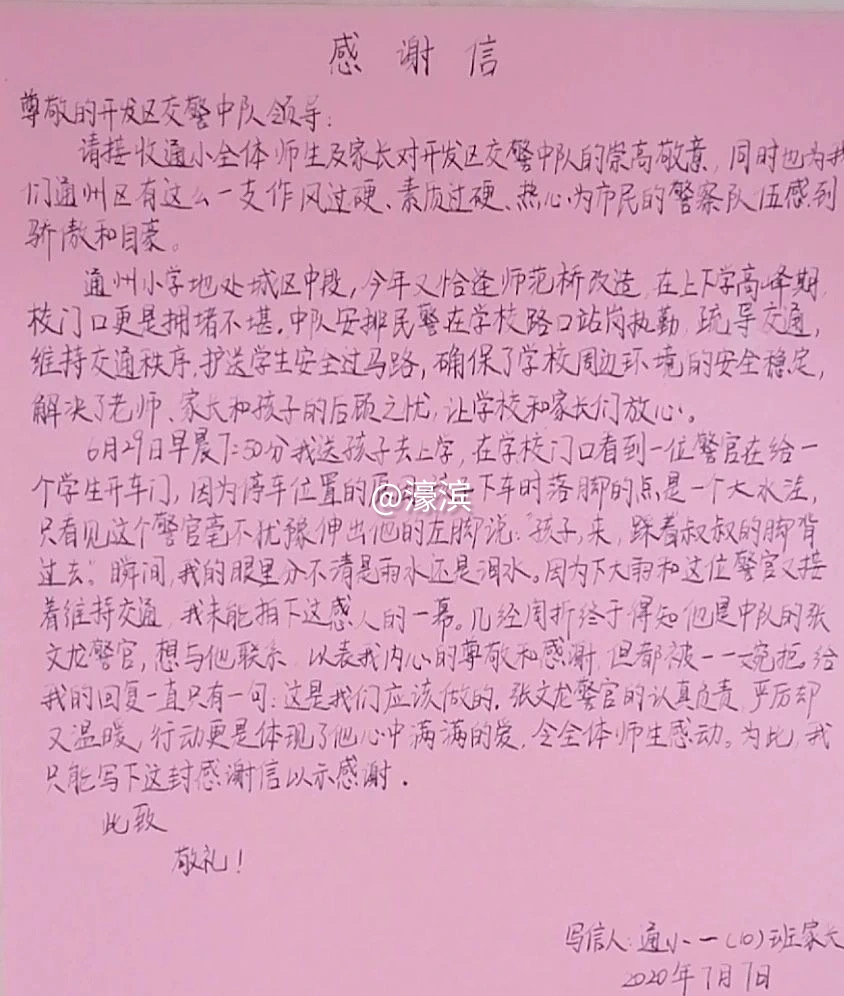 感谢信
尊敬的开发区交警中队领导:
请接收通小全体师生及家长对开发区交警中队的崇高敬意,同时也为我
们通州区有这么一支作风过硬、素质过硬、热心为市民的警察队伍感到
骄傲和自豪。
通州小学地处城区中段,今年又恰逢师范桥改造,在上下学高峰期,
校门口更是拥堵不堪.中队安排民警在学校路口站岗执勤,疏导交通,
维持交通秩序.护送学生安全过马路,确保了学校周边环境的安全稳定,
解决了老师、家长和孩子的后顾之忧,让学校和家长们放心。
6月29日早晨7:50分我送孩子去上学,在学校门口看到一位警官在给一
个学生开车门,因为停车位置的 下车时落脚的点是一个大水洼,
@濠滨
只看见这个警官毫不犹豫伸出他的左脚说:"孩子,来,踩着叔叔的脚背
过去。"瞬间,我的眼里分不清是雨水还是泪水。因为下大雨和这位警官又接
着维持交通,我未能拍下这感人的一幕。几经周折终于得知他是中队的张
文龙警官,想与他联系,以表我内心的尊敬和感谢,但都被一一婉拒。给
我的回复一直只有一句:这是我们应该做的.张文龙警官的认真负责,严厉却
又温暖,行动更是体现了他心中满满的爱,令全体师生感动。为此,我
只能写下这封感谢信以示感谢.
此致
敬礼!
写信人:通小一(10)班家长
2020年7月7日